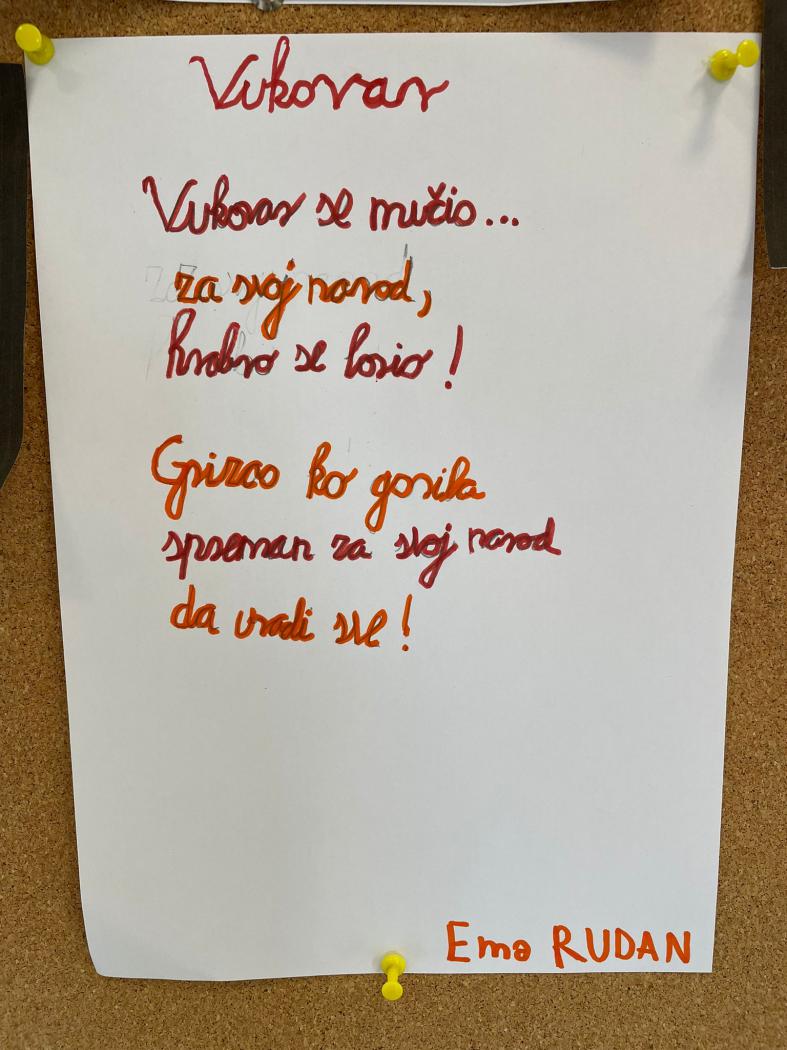 Vukovar
Vukovar se mučio...
za svoj narod,
hrabro se borio!
Grizao ko gorila
spreman za svoj narod
da uradi sve!
Ema RUDAN